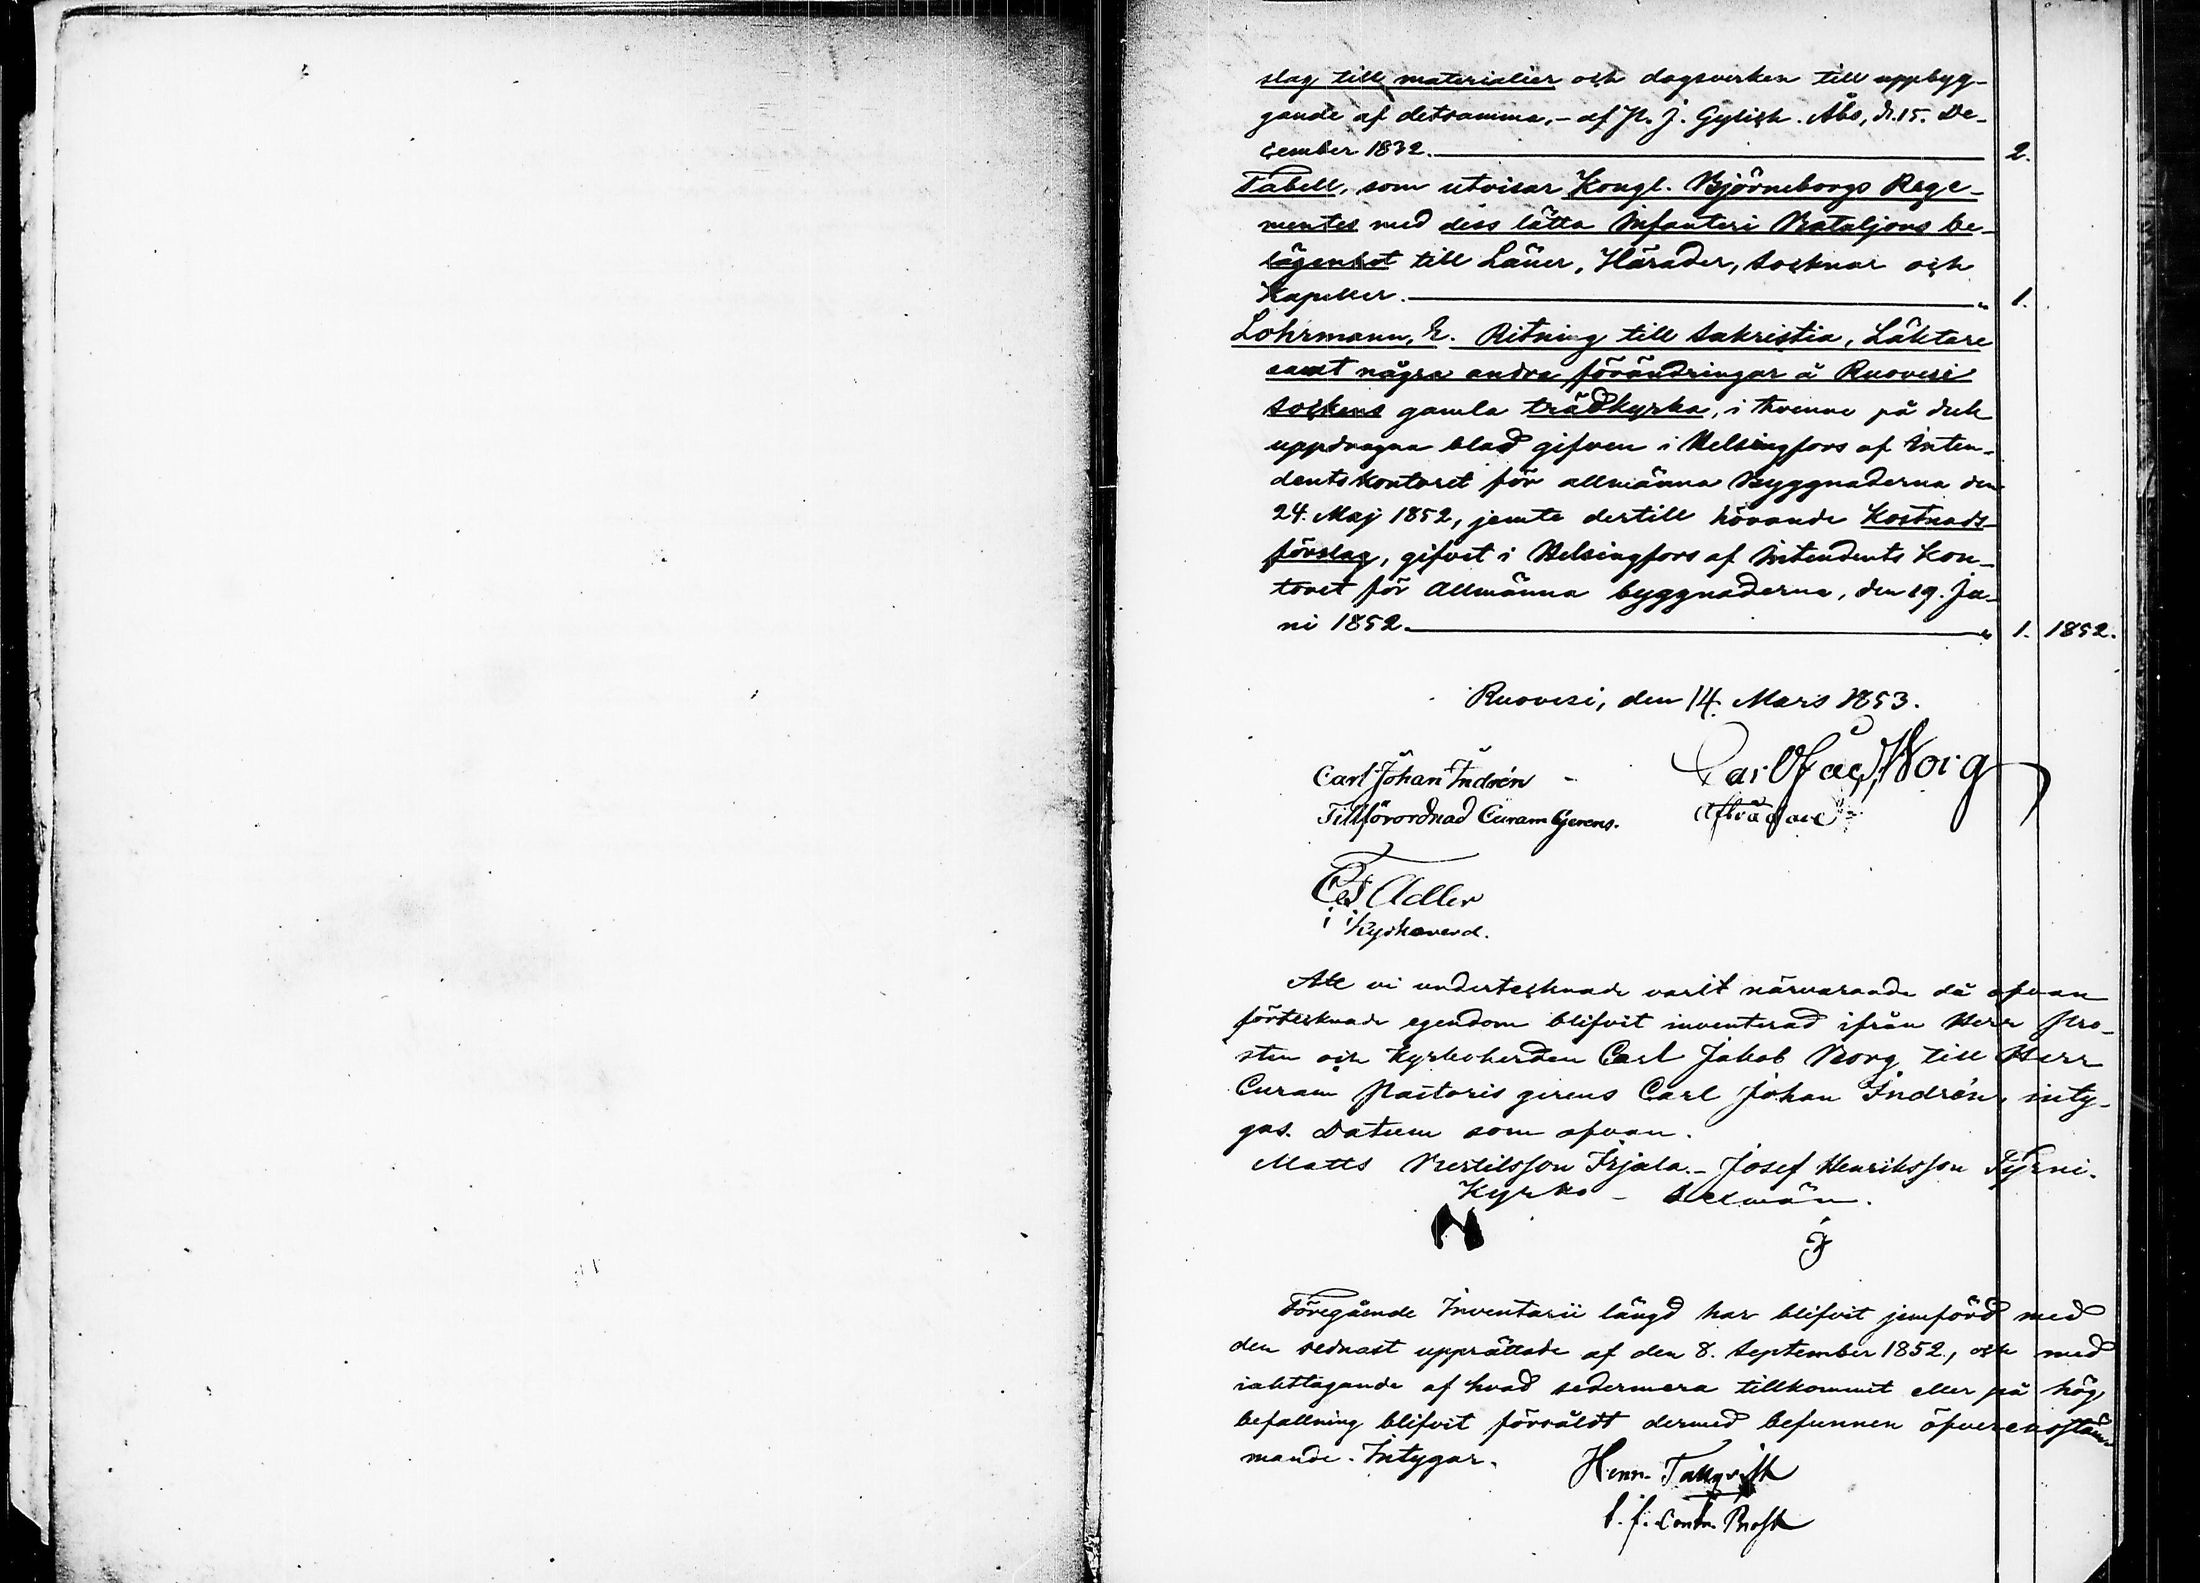 slag till materialier och dagsverken till uppbyg-
gande af detsamma, - af P. J. Gylich. Åbo, d. 15. De-
cember 1832. 2.
Tabell, som utvisar Kongl. Björneborgs Rege-
mentes med dess lätta Infanteri Bataljons be-
lägenhet till Läner, Härader, Socknar och
Kapeller. " 1.
Lohrmann, E. Ritning till Sakristia, Läktare
samt några andra förändringar å Ruovesi
Sockens gamla trädkyrka, i tvenne på duk
uppdragna blad gifven i Helsingfors af Inten-
dentskontoret för allmänna Byggnaderna den
24. Maj 1852, jemte dertill hörande Kostnads-
förslag, gifvet i Helsingfors af Intendents Kon-
toret för Allmänna byggnaderna, den 19. Ju-
ni 1852. " 1. 1852.
Ruovesi, den 14. Mars 1853.
Carl Johan Indrén - Carl Jac. Borg
Tillförordnad Curam Gerens. Afträdare
Adler
Kyrkoverd.
Att vi undertecknade varit närvarande då ofvan
förtecknade egendom blifvit inventerad ifrån Herr Pro-
sten och Kyrkoherden Carl Jakob Borg till Herr
Curam Pastoris gerens Carl Johan Indrén, inty-
gas. Datum som ofvan.
Matts Bertilsson Irjala. - Josef Henriksson Tyrni.
Kyrko - Sexmän.
Föregående Inventarii längd har blifvit jemförd med
den sednast upprättade af den 8. September 1852, och med
iakttagande af hvad sedermera tillkommit eller på hög
befallning blifvit försåldt dermed befunnen öfverensstäm-
mande. Intygar.
Henr. Tallqvist
t. f. Contr. Prost